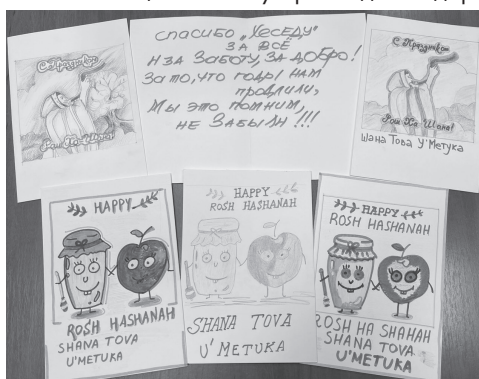 С Праздником
Рош Ха Шана!
спасибо „Хеседу"
за всё
И за заботу, за добро!
За то, что годы нам
продлили,
Мы это помним,
не забыли!!!
С Праздником
Рош Ха Шана!
Шана Това У'Метука
HAPPY
ROSH HASHANAH
SHANA TOVA
U'METUKA
HAPPY
ROSH HASHANAH
SHANA TOVA
U'METUKA
HAPPY
ROSH HASHANAH
ROSH HA SHAHAH
SHANA TOVA
U'METUKA